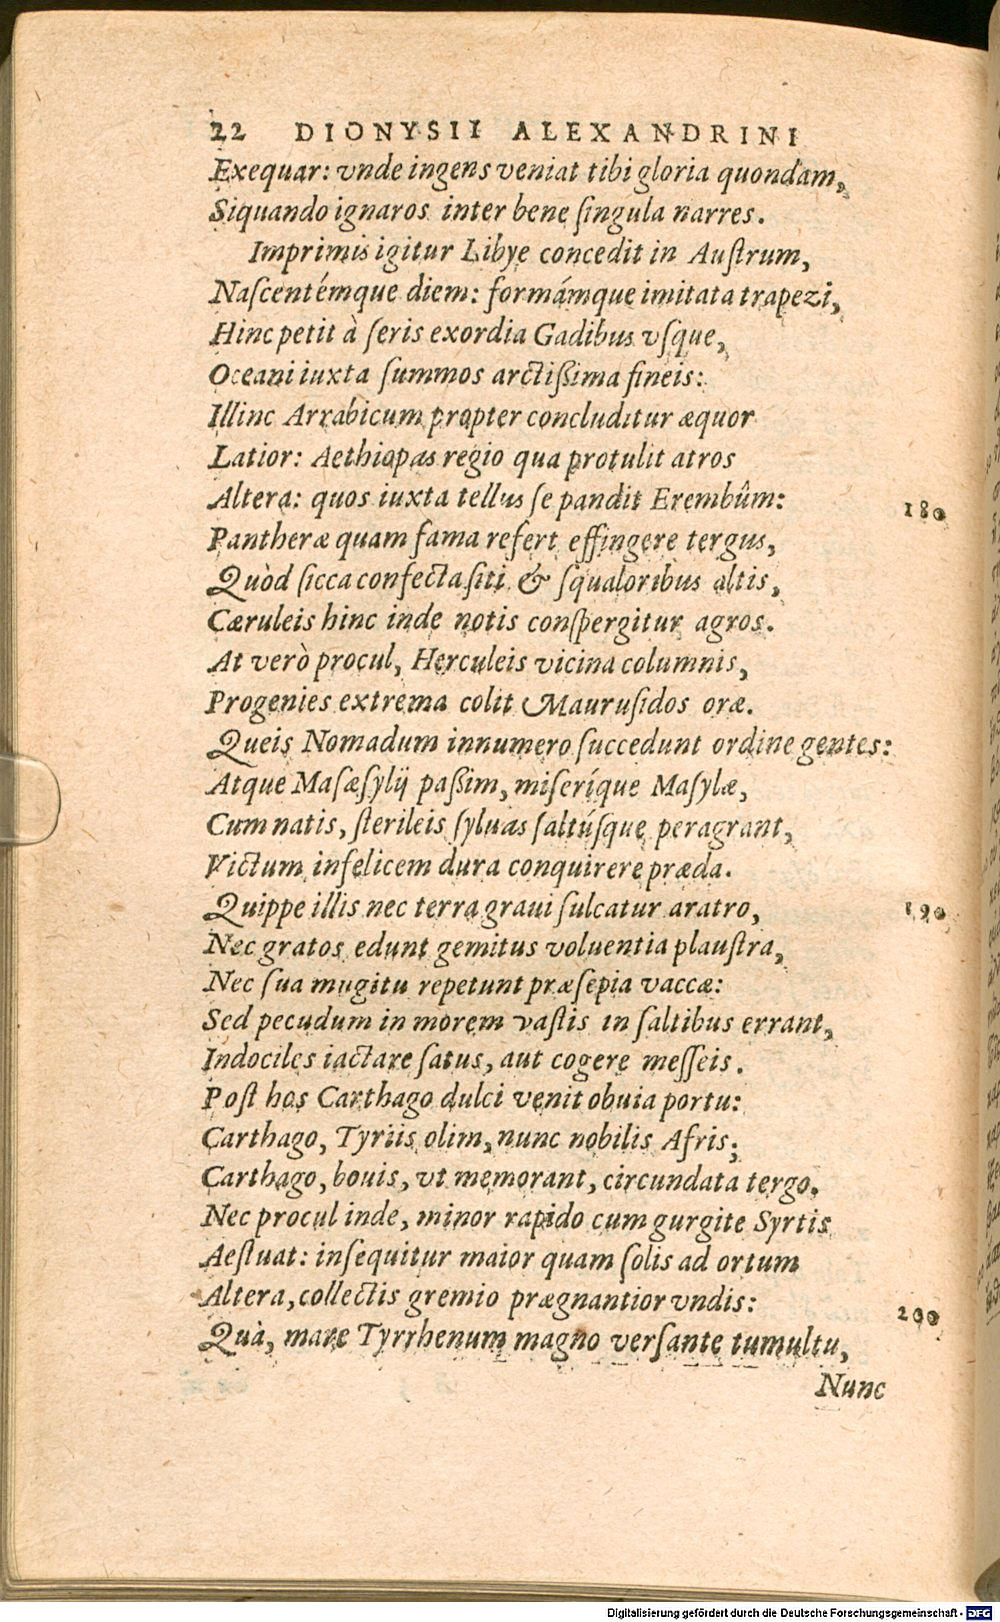 22 DIONYSII ALEXANDRINI
Exequar: vnde ingens veniat tibi gloria quondam,
Siquando ignaros inter bene ſingula narres.
Imprimis igitur Libye concedit in Auſtrum,
Naſcentémque diem: formámque imitata trapezi,
Hinc petit à ſeris exordia Gadibus vſque,
Oceani iuxta ſummos arctißima fineis:
Illinc Arrabicum propter concluditur æquor
Latior: Aethiopas regio qua protulit atros
Altera: quos iuxta tellus ſe pandit Erembûm: 180
Pantheræ quam fama refert effingere tergus,
Quòd ſicca confecta ſiti & ſqualoribus altis,
Cæruleis hinc inde notis conſpergitur agros.
At verò procul, Herculeis vicina columnis,
Progenies extrema colit Mauruſidos oræ.
Queis Nomadum innumero ſuccedunt ordine gentes:
Atque Maſæſylij paßim, miſeríque Maſylæ,
Cum natis, ſterileis ſyluas ſaltúſque peragrant,
Victum infelicem dura conquirere præda.
Quippe illis nec terra graui ſulcatur aratro, 190
Nec gratos edunt gemitus voluentia plauſtra,
Nec ſua mugitu repetunt præſepia vaccæ:
Sed pecudum in morem vaſtis in ſaltibus errant,
Indociles iactare ſatus, aut cogere meſſeis.
Poſt hos Carthago dulci venit obuia portu:
Carthago, Tyriis olim, nunc nobilis Afris;
Carthago, bouis, vt memorant, circundata tergo.
Nec procul inde, minor rapido cum gurgite Syrtis
Aeſtuat: inſequitur maior quam ſolis ad ortum
Altera, collectis gremio prægnantior vndis: 200
Quà, mare Tyrrhenum magno verſante tumultu,
Nunc
Digitalisierung gefördert durch die Deutsche Forschungsgemeinschaft - DFG